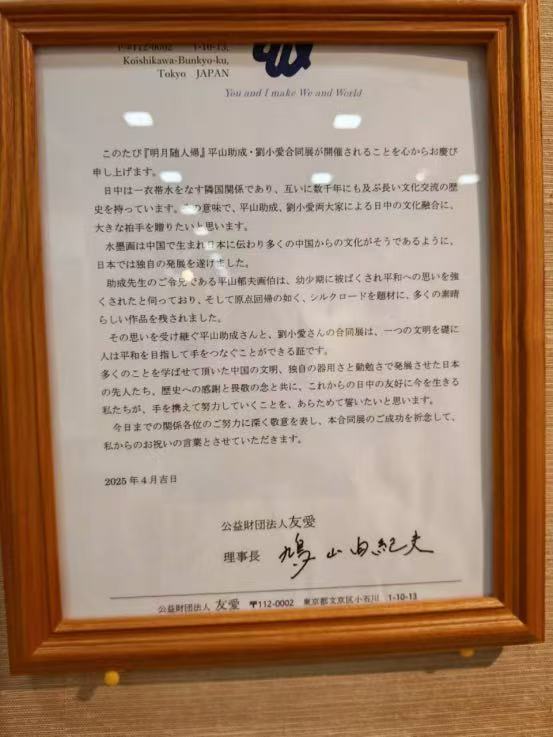 〒112-0002 1-10-13,
Koishikawa-Bunkyo-ku,
Tokyo JAPAN
You and I make We and World
このたび『明月随人帰』平山助成・劉小愛合同展が開催されることを心からお慶び
申し上げます。
日中は一衣帯水をなす隣国関係であり、互いに数千年にも及ぶ長い文化交流の歴
史を持っています。その意味で、平山助成、劉小愛両大家による日中の文化融合に、
大きな拍手を贈りたいと思います。
水墨画は中国で生まれ日本に伝わり多くの中国からの文化がそうであるように、
日本では独自の発展を遂げました。
助成先生のご令兄である平山郁夫画伯は、幼少期に被ばくされ平和への思いを強
くされたと伺っており、そして原点回帰の如く、シルクロードを題材に、多くの素晴
らしい作品を残されました。
その思いを受け継ぐ平山助成さんと、劉小愛さんの合同展は、一つの文明を礎に
人は平和を目指して手をつなぐことができる証です。
多くのことを学ばせて頂いた中国の文明、独自の器用さと勤勉さで発展させた日本
の先人たち、歴史への感謝と畏敬の念と共に、これからの日中の友好に今を生きる
私たちが、手を携えて努力していくことを、あらためて誓いたいと思います。
今日までの関係各位のご努力に深く敬意を表し、本合同展のご成功を祈念して、
私からのお祝いの言葉とさせていただきます。
2025年4月吉日
公益財団法人友愛
理事長 鳩山由紀夫
公益財団法人 友愛 〒112-0002 東京都文京区小石川 1-10-13